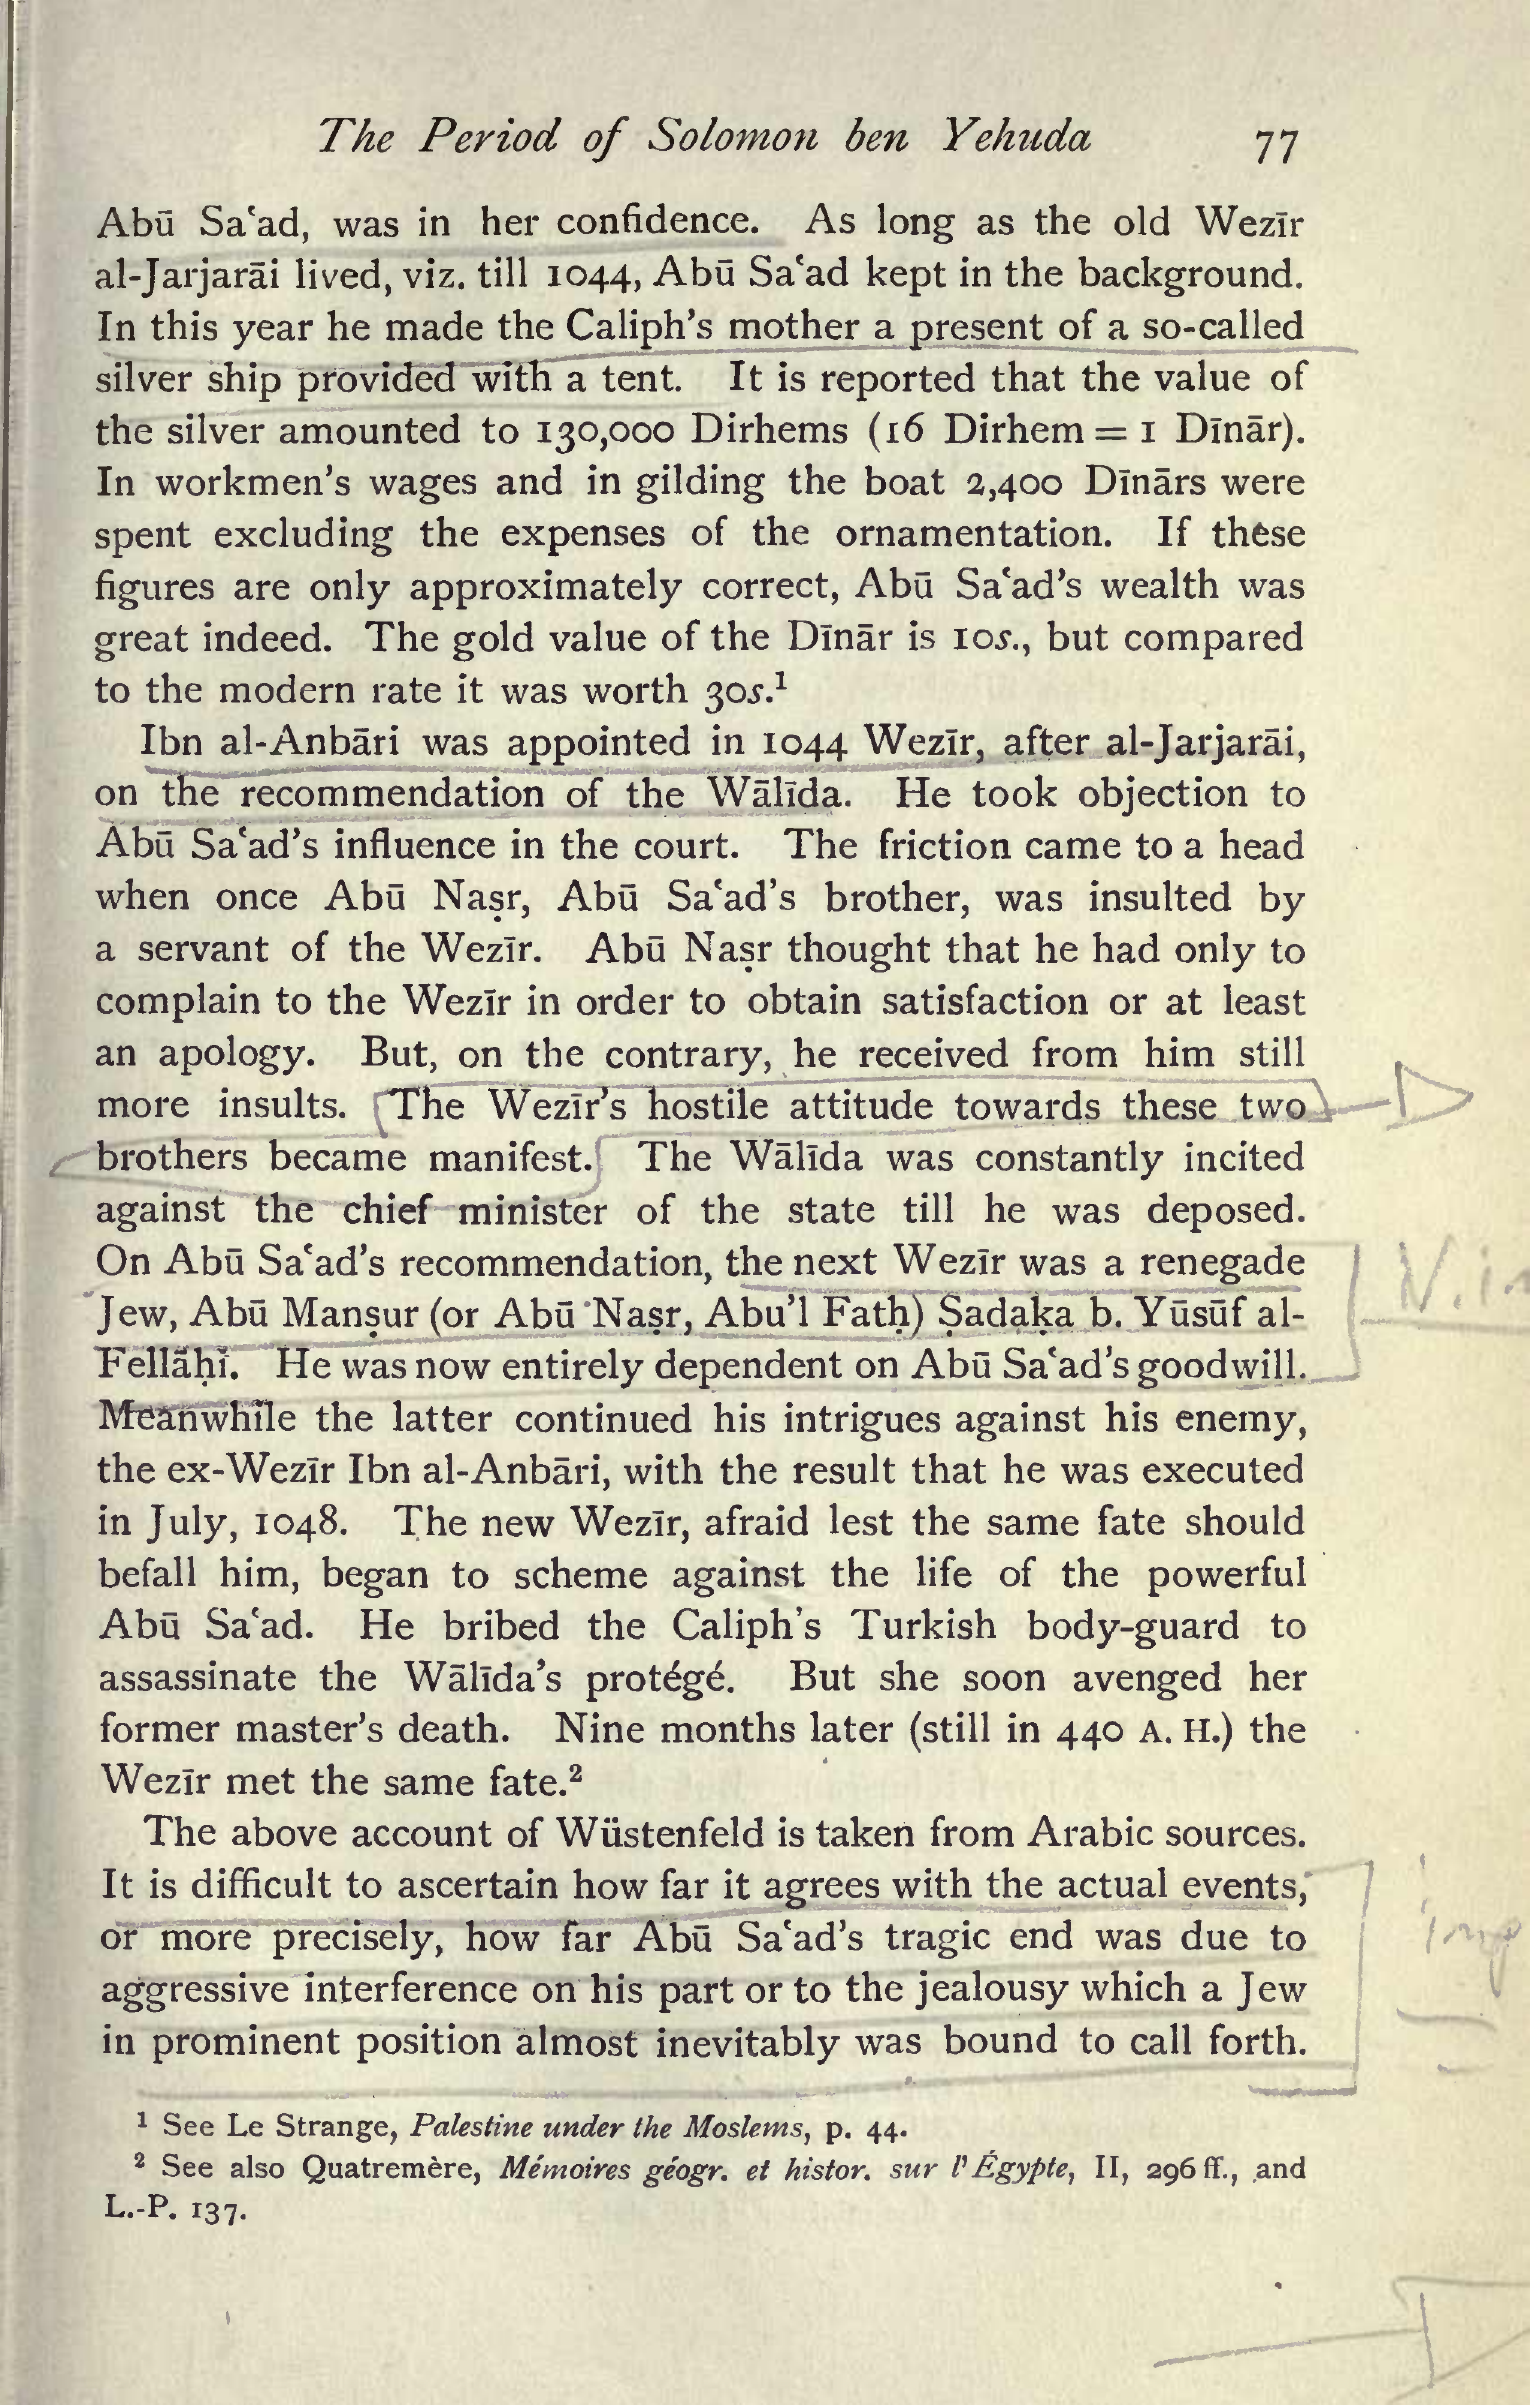 The Period of Solomon ben Yehuda 77
Abū Saʿad, was in her confidence. As long as the old Wezīr
al-Jarjarāi lived, viz. till 1044, Abū Saʿad kept in the background.
In this year he made the Caliph's mother a present of a so-called
silver ship provided with a tent. It is reported that the value of
the silver amounted to 130,000 Dirhems (16 Dirhem = 1 Dīnār).
In workmen's wages and in gilding the boat 2,400 Dīnārs were
spent excluding the expenses of the ornamentation. If these
figures are only approximately correct, Abū Saʿad's wealth was
great indeed. The gold value of the Dīnār is 10s., but compared
to the modern rate it was worth 30s.¹
Ibn al-Anbāri was appointed in 1044 Wezīr, after al-Jarjarāi,
on the recommendation of the Wālīda. He took objection to
Abū Saʿad's influence in the court. The friction came to a head
when once Abū Naṣr, Abū Saʿad's brother, was insulted by
a servant of the Wezīr. Abū Naṣr thought that he had only to
complain to the Wezīr in order to obtain satisfaction or at least
an apology. But, on the contrary, he received from him still
more insults. The Wezīr's hostile attitude towards these two
brothers became manifest. The Wālīda was constantly incited
against the chief minister of the state till he was deposed.
On Abū Saʿad's recommendation, the next Wezīr was a renegade
Jew, Abū Manṣur (or Abū Naṣr, Abu'l Fatḥ) Ṣadaḳa b. Yūsūf al-
Fellāḥī. He was now entirely dependent on Abū Saʿad's goodwill.
Meanwhile the latter continued his intrigues against his enemy,
the ex-Wezīr Ibn al-Anbāri, with the result that he was executed
in July, 1048. The new Wezīr, afraid lest the same fate should
befall him, began to scheme against the life of the powerful
Abū Saʿad. He bribed the Caliph's Turkish body-guard to
assassinate the Wālīda's protégé. But she soon avenged her
former master's death. Nine months later (still in 440 A. H.) the
Wezīr met the same fate.²
The above account of Wüstenfeld is taken from Arabic sources.
It is difficult to ascertain how far it agrees with the actual events,
or more precisely, how far Abū Saʿad's tragic end was due to
aggressive interference on his part or to the jealousy which a Jew
in prominent position almost inevitably was bound to call forth.
¹ See Le Strange, Palestine under the Moslems, p. 44.
² See also Quatremère, Mémoires géogr. et histor. sur l'Égypte, II, 296 ff., and
L.-P. 137.